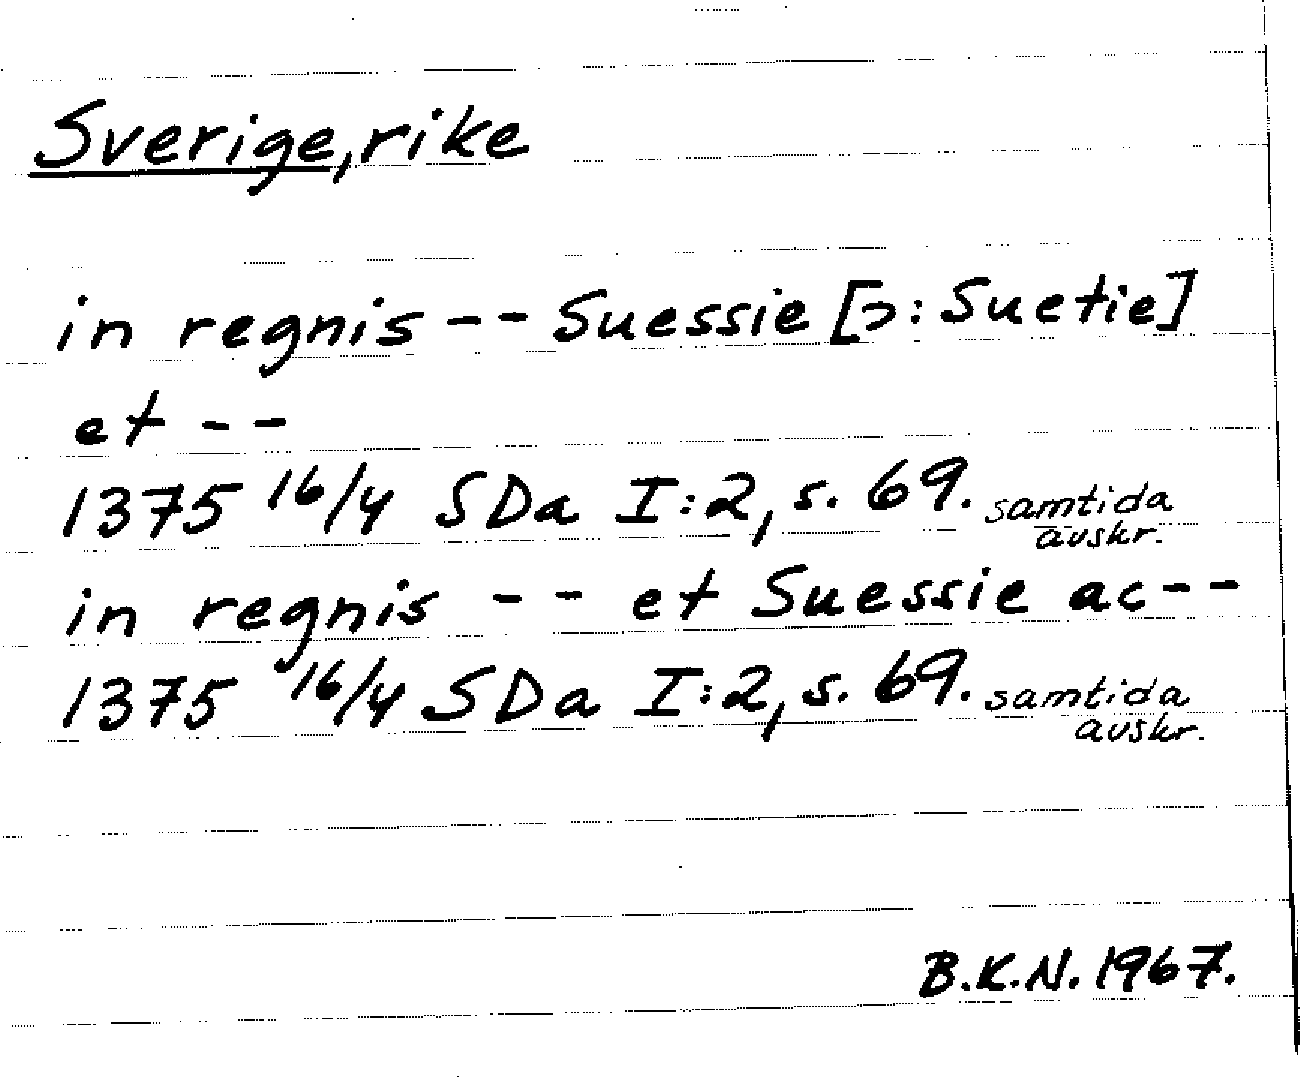 Sverige, rike
in regnis -- Suessie [ɔ: Suetie]
et --
1375 16/4 SDa I:2, s. 69. samtida avskr.
in regnis -- et Suessie ac --
1375 16/4 SDa I:2, s. 69. samtida avskr.
B.K.N. 1967.